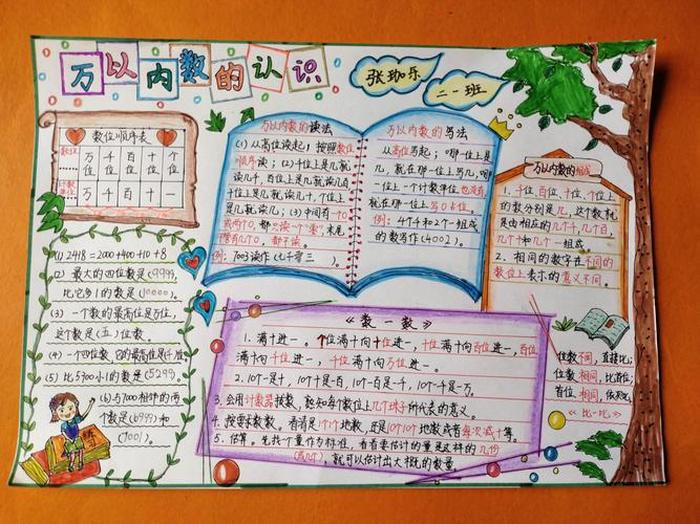 万以内数的认识
张珈乐
二一班
数位顺序表
数位
万位
千位
百位
十位
个位
计数单位
万 千 百 十 一
(1) 2418=2000+400+10+8
(2) 最大的四位数是(9999),
比它多1的数是(10000)。
(3) 一个数的最高位是万位,
这个数是(五)位数。
(4) 一个四位数,它的最高位是千位。
(5) 比5300小1的数是(5299)。
(6) 与7000相邻的两
个数是(6999)和
(7001)。
万以内数的读法
(1) 从高位读起;按照数位
顺序读;(2)千位上是几就
读几千,百位上是几就读几百
十位上是几就读几十,个位上
是几就读几;(3)中间有一个0
或两个0,都只读一个"零",末尾
不管有几个0,都不读。
例:7003读作(七千零三)。
万以内数的写法
从高位写起;哪一位上是
几,就在那一位上写几,哪
一位上一个计数单位也没有,
就在那一位上写0占位。
例:4个千和2个一组成
的数写作(4002)。
万以内数的组成
1、千位百位、十位、个位上
的数分别是几,这个数就
是由相应的几个千,几个百,
几个十和几个一组成。
2、相同的数字在不同的
数位上表示的意义不同。
《数一数》
1. 满十进一。个位满十向十位进一,十位满十向百位进一,百位
满十向千位进一,千位满十向万位进一。
2. 10个一是十,10个十是百,10个一百是千,10个一千是万。
3. 会用计数器拨数,能知每个数位上几个珠子所代表的意义。
4. 按要求数数,看清是1个1个地数,还是10个10个地数或者每次减十等。
5. 估算。先找个量作为标准,看看要估计的量是这样的几份
(或几个),就可以估计出大概的数量
位数不同,直接比;
位数相同,比首位;
首位相同,依次比。
《比一比》